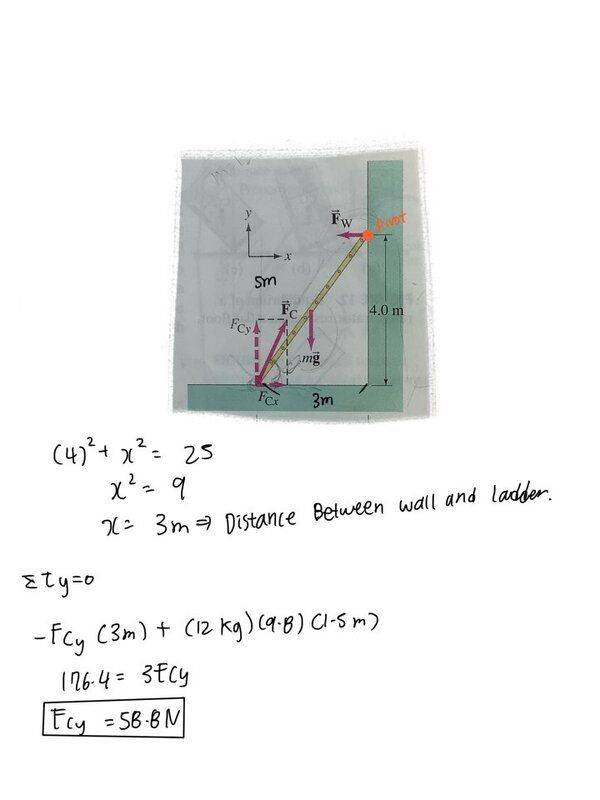 y
F⃗W
Pivot
x
5m
F⃗C
FCy
4.0 m
mg⃗
FCx
3m
(4)² + x² = 25
x² = 9
x = 3m ⇒ Distance Between wall and ladder.
Στy=0
-FCy (3m) + (12 kg)(9.8)(1.5m)
176.4 = 3FCy
FCy = 58.8N